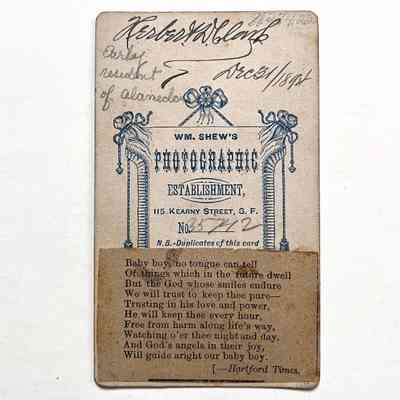 Herbert D. Clark
Early
resident
of Alameda
Dec 31/1874
WM. SHEW'S
PHOTOGRAPHIC
ESTABLISHMENT,
115 KEARNY STREET, S. F.
No.
N.B.-Duplicates of this card
Baby boy, no tongue can tell
Of things which in the future dwell
But the God whose smiles endure
We will trust to keep thee pure—
Trusting in his love and power,
He will keep thee every hour,
Free from harm along life's way,
Watching o'er thee night and day.
And God's angels in their joy,
Will guide aright our baby boy.
[—Hartford Times.